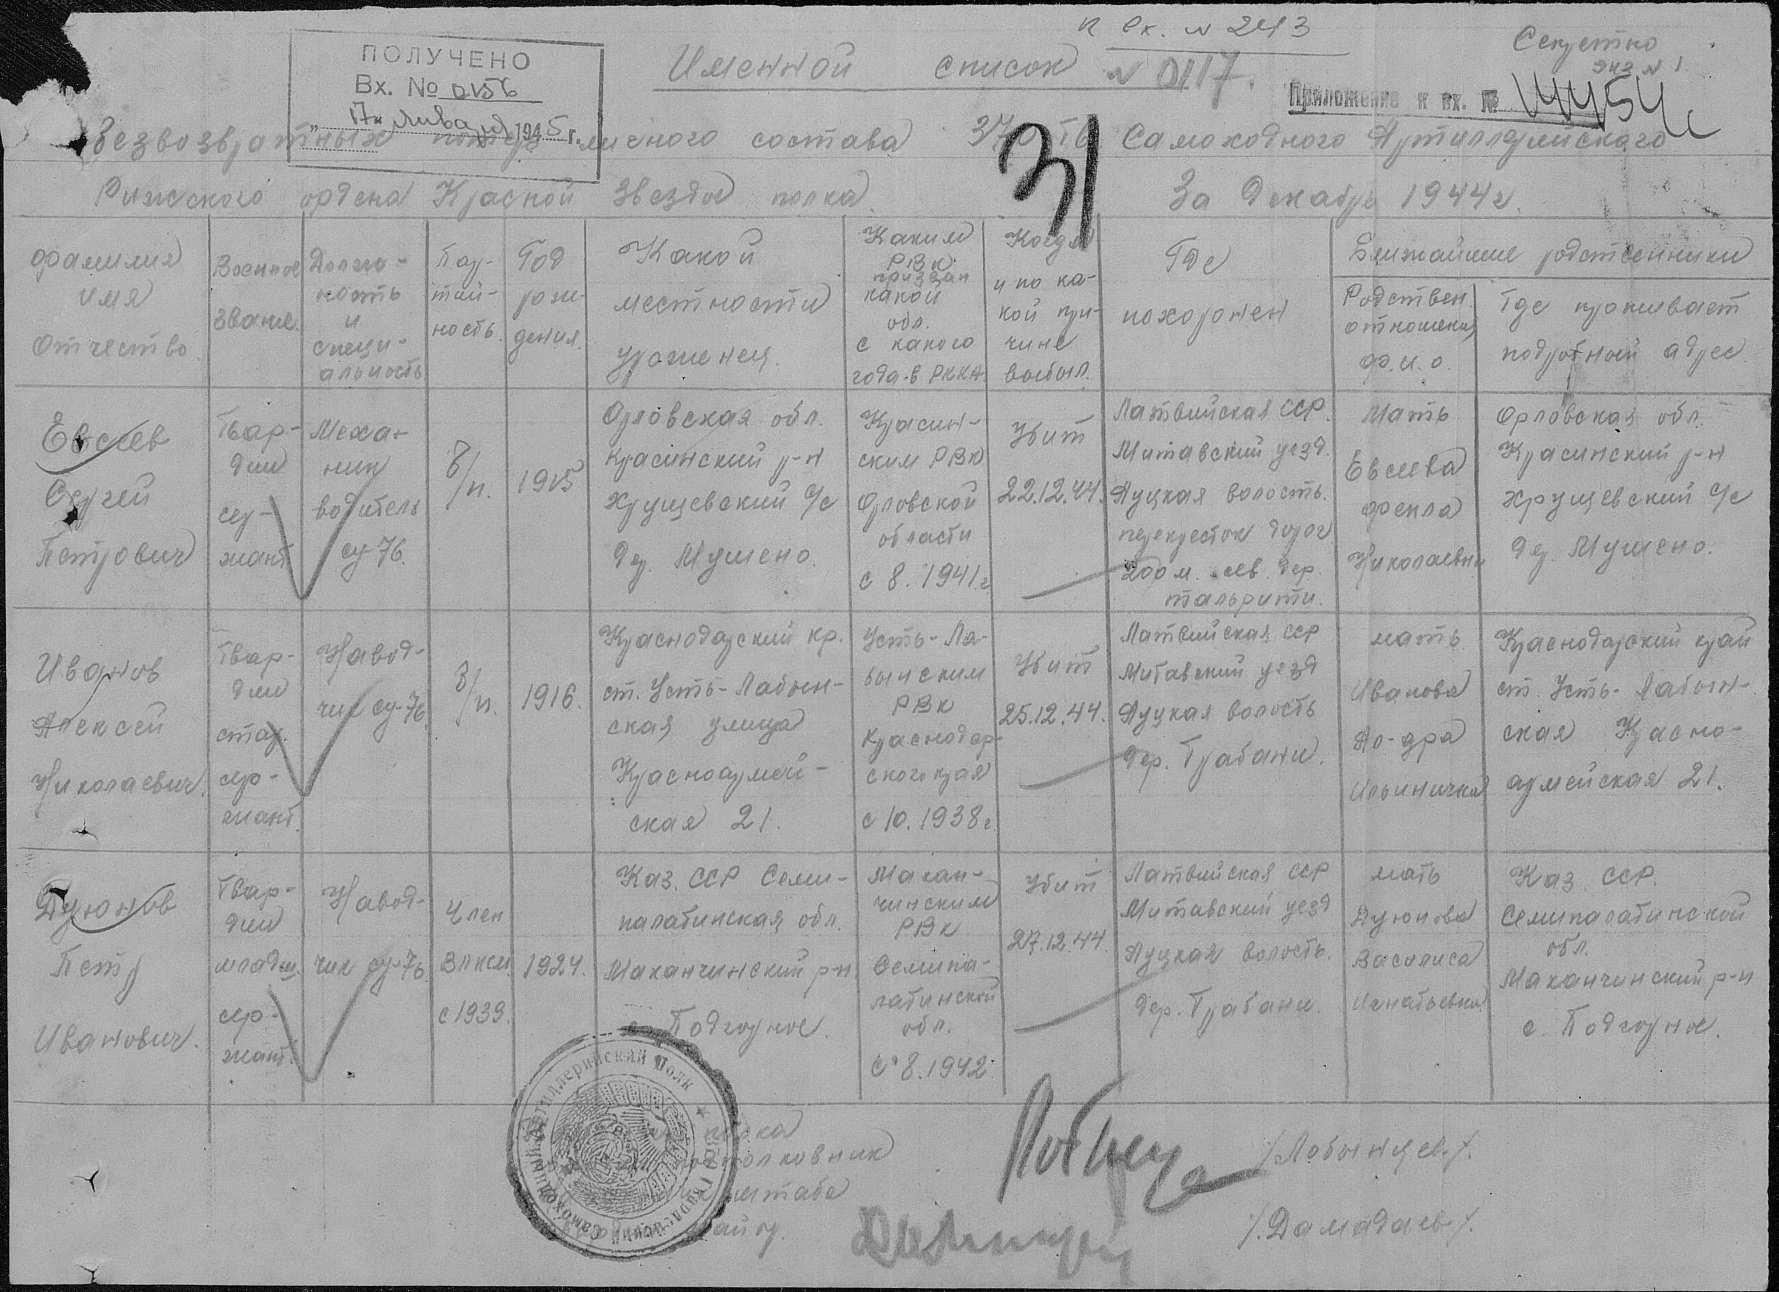 к вх. № 243
Секретно
экз № 1
ПОЛУЧЕНО
Вх. № 0156
"17" января 1945 г.
Именной список № 0117.
Приложение к вх. №
31
Безвозвратных потерь личного состава 370 Гв Самоходного Артиллерийского
Рижского ордена Красной Звезды полка За Декабрь 1944 г.
Фамилия
имя
Отчество
Военное
звание.
Должно-
ность
и
специ-
альность
Пар-
тий-
ность.
Год
рож-
дения.
Какой
местности
уроженец.
Каким
РВК
призван
какой
обл.
с какого
года в РККА
Когда
и по ка-
кой при-
чине
выбыл.
Где
похоронен
Ближайшие родственники
Родствен.
отношения
ф.и.о.
Где проживает
подробный адрес
Евсеев
Сергей
Петрович
Гвар-
дии
сер-
жант
Меха-
ник
водитель
су-76.
б/п.
1915
Орловская обл.
Красинский р-н
Хрущевский с/с
Дер. Мушено.
Красин-
ским РВК
Орловской
области
с 8. 1941 г
Убит
22.12.44.
Латвийская ССР.
Митавский уезд.
Яуцкая волость.
перекресток дорог
200 м. сев. дер.
тальрити.
Мать
Евсеева
Фекла
Николаевна
Орловская обл.
Красинский р-н
Хрущевский с/с
Дер. Мушено.
Иванов
Алексей
Николаевич.
Гвар-
дии
стар.
сер-
жант.
Навод-
чик су-76.
б/п.
1916.
Краснодарский кр.
ст. Усть-Лабын-
ская улица
Красноармей-
ская 21.
Усть-Ла-
бынским
РВК
Краснодар-
ского края
с 10. 1938 г.
Убит
25.12.44.
Латвийская ССР
Митавский уезд
Яуцкая волость
Дер. Грабани.
мать
Иванова
Ал-дра
Ильинична
Краснодарский край
ст. Усть-Лабын-
ская Красно-
армейская 21.
Дуюнов
Петр
Иванович.
Гвар-
дии
младш.
сер-
жант.
Навод-
чик су-76
Член
ВЛКСМ
с 1939.
1924.
Каз. ССР Семи-
палатинская обл.
Маканчинский р-н
с. Подгорное.
Макан-
чинским
РВК
Семипа-
латинской
обл.
с 8. 1942
Убит
27.12.44.
Латвийская ССР
Митавский уезд
Яуцкая волость.
Дер. Грабани.
мать
Дуюнова
Василиса
Игнатьевна
Каз. ССР.
Семипалатинской
обл.
Маканчинский р-н
с. Подгорное.
полка
подполковник /Лобынцев/.
штаба
майор. /Дамадаев/.
Самоходный Артиллерийский Полк